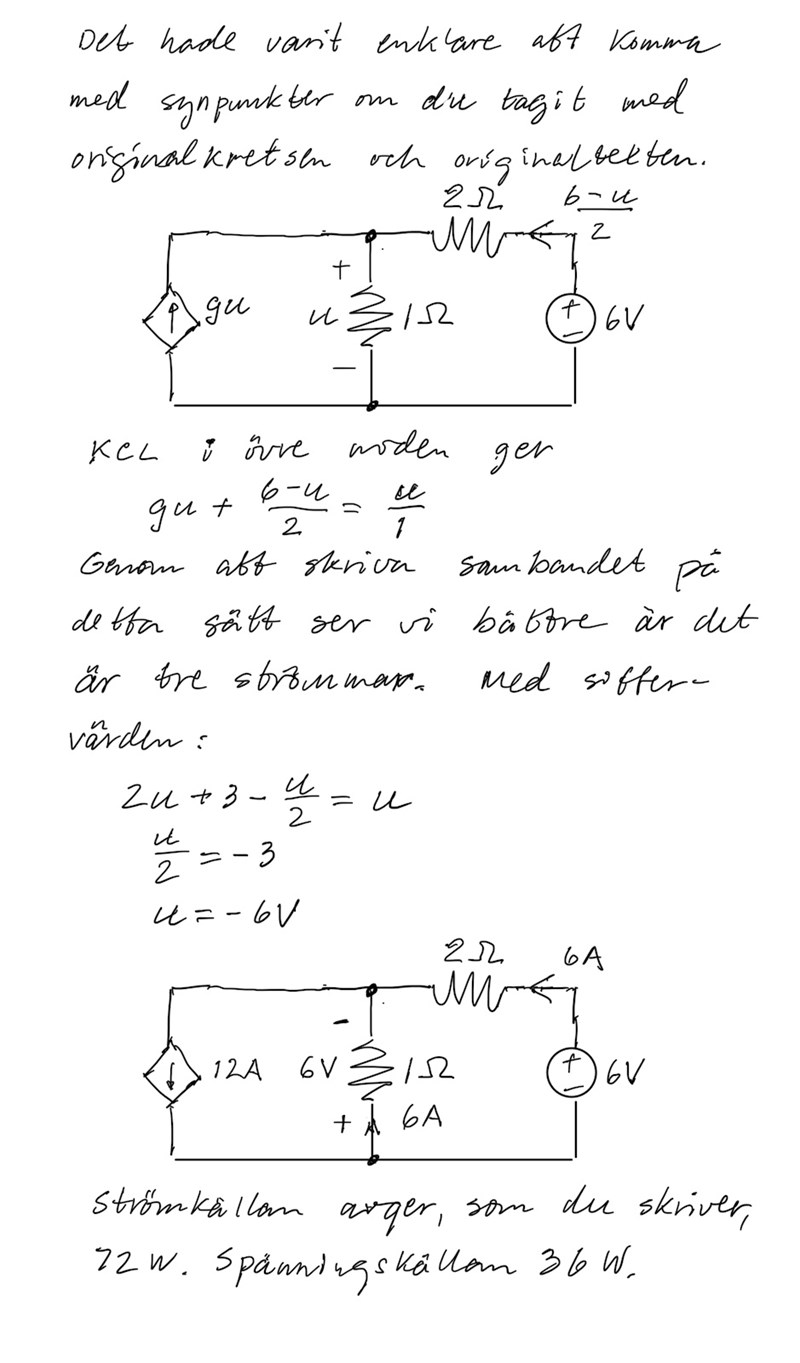 Det hade varit enklare att komma
med synpunkter om du tagit med
originalkretsen och originaltexten.
2Ω
6-u
2
+
gu
u
1Ω
+
6V
-
-
KCL i övre noden ger
gu + 6-u/2 = u/1
Genom att skriva sambandet på
detta sätt ser vi bättre är det
är tre strömmar. Med siffer-
värden:
2u + 3 - u/2 = u
u/2 = -3
u = -6V
2Ω
6A
-
12A
6V
1Ω
+
6V
-
+
6A
Strömkällan avger, som du skriver,
72 W. Spänningskällan 36 W.